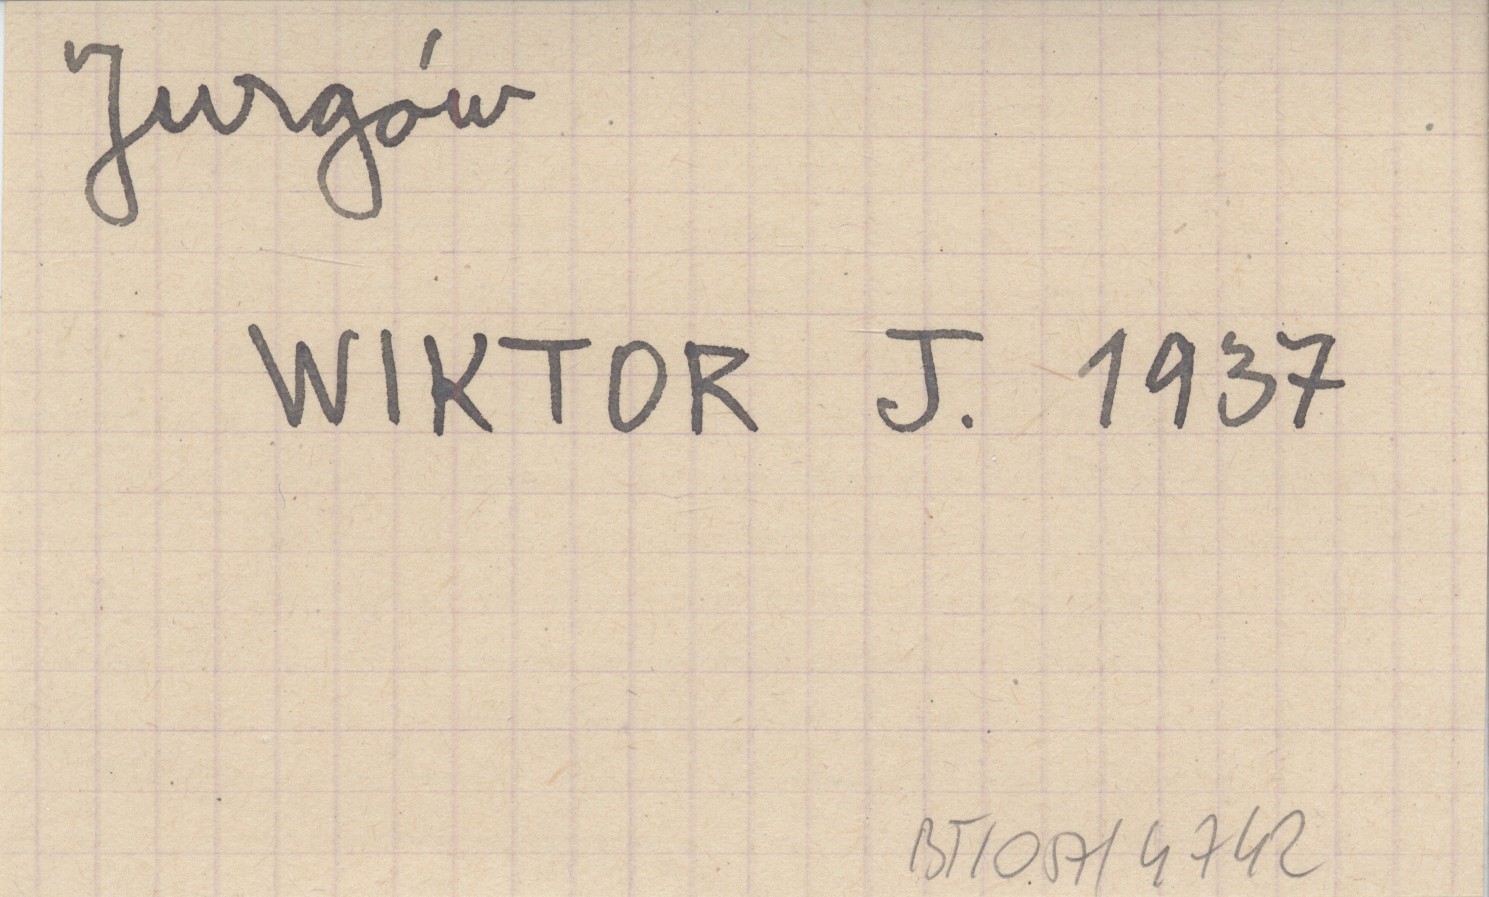 Jurgów
WIKTOR J. 1937
BT/057/4742